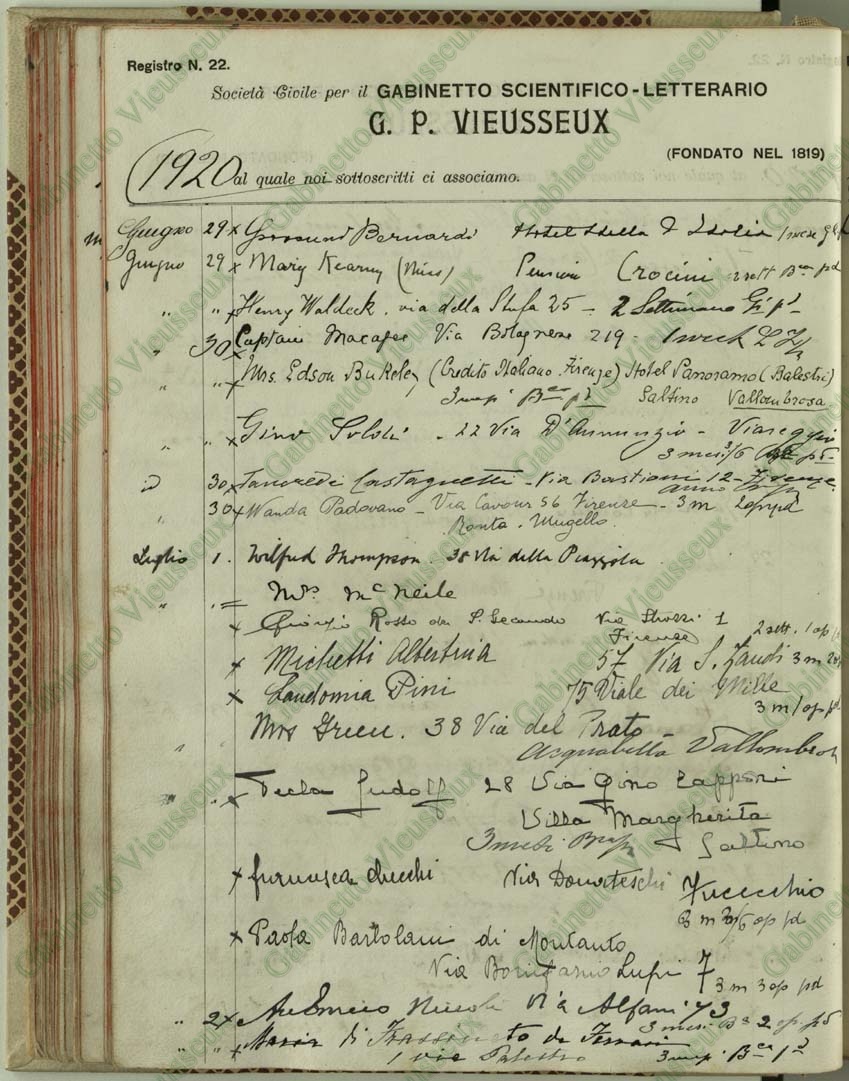 Registro N. 22.
Società Civile per il GABINETTO SCIENTIFICO-LETTERARIO
G. P. VIEUSSEUX
(FONDATO NEL 1819)
1920
al quale noi sottoscritti ci associamo.
Giugno 29 x Bernardi Hotel Stella d'Italia
Giugno 29 x Mary Kearny (Miss) Pension Crocini 2 sett Bca pd
" " x Henry Waldeck. via della Stufa 25 - 2 Settimane
" 30 x Captain Macafee Via Bolognese 219 - 1 week
" " x Mrs. Edson Bukeley (Credito Italiano. Firenze) Hotel Panoramo (Balestri)
3 Saltino Vallombrosa
" " x Gino - 22 Via D'Annunzio - Viareggio
3 mesi
id 30 x Tancredi Castagnetti - Via Bastioni 12 - Firenze.
anno
" 30 x Wanda Padovano - Via Cavour 56 Firenze - 3 m
Ronta. Mugello.
Luglio 1. Wilfred Thompson. 38 Via della Piazzola
" Mrs McNeile
x Giorgio Rosso da S. Secondo Via Strozzi 1
Firenze 2 sett. 1 op
x Michetti Albertina 57 Via S. Zanobi 3 m
x Laudomia Pini 75 Viale dei Mille
3 m 1 op pd
" " Mrs Green. 38 Via del Prato -
Acquabella Vallombrosa
" " x Tecla 28 Via Gino Capponi
Villa Margherita
3 mesi Saltino
x Via Donateschi Fucecchio
3 m op pd
x Paola Bartolani di Montauto
Via Bonifazio Lupi 7
3 m 3 op pd
" 2 x Via Alfani 73
3 mesi Ba 2 op. pd
" " x Maria di Frassineto de Ferrari
1 via Palestro 3 Bca pd
Gabinetto Vieusseux